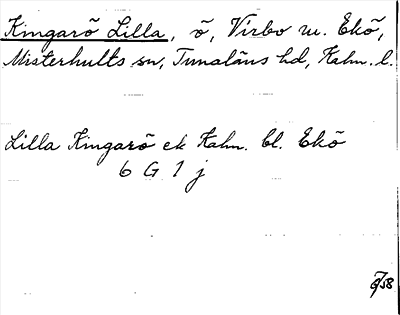 Kingarö Lilla, ö, Virbo m. Ekö,
Misterhults sn, Tunaläns hd, Kalm. l.
Lilla Kingarö ek Kalm. bl. Ekö
6 G 1 j